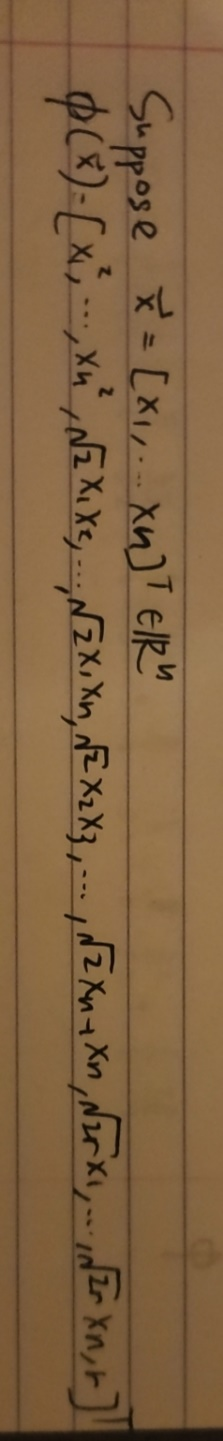 Suppose x⃗ = [x₁, ... xn]ᵀ ∈ ℝⁿ
φ(x⃗) = [x₁², ..., xn², √2 x₁x₂, ..., √2 x₁xn, √2 x₂x₃, ..., √2 xn-1 xn, √2r x₁, ..., √2r xn, r]ᵀ